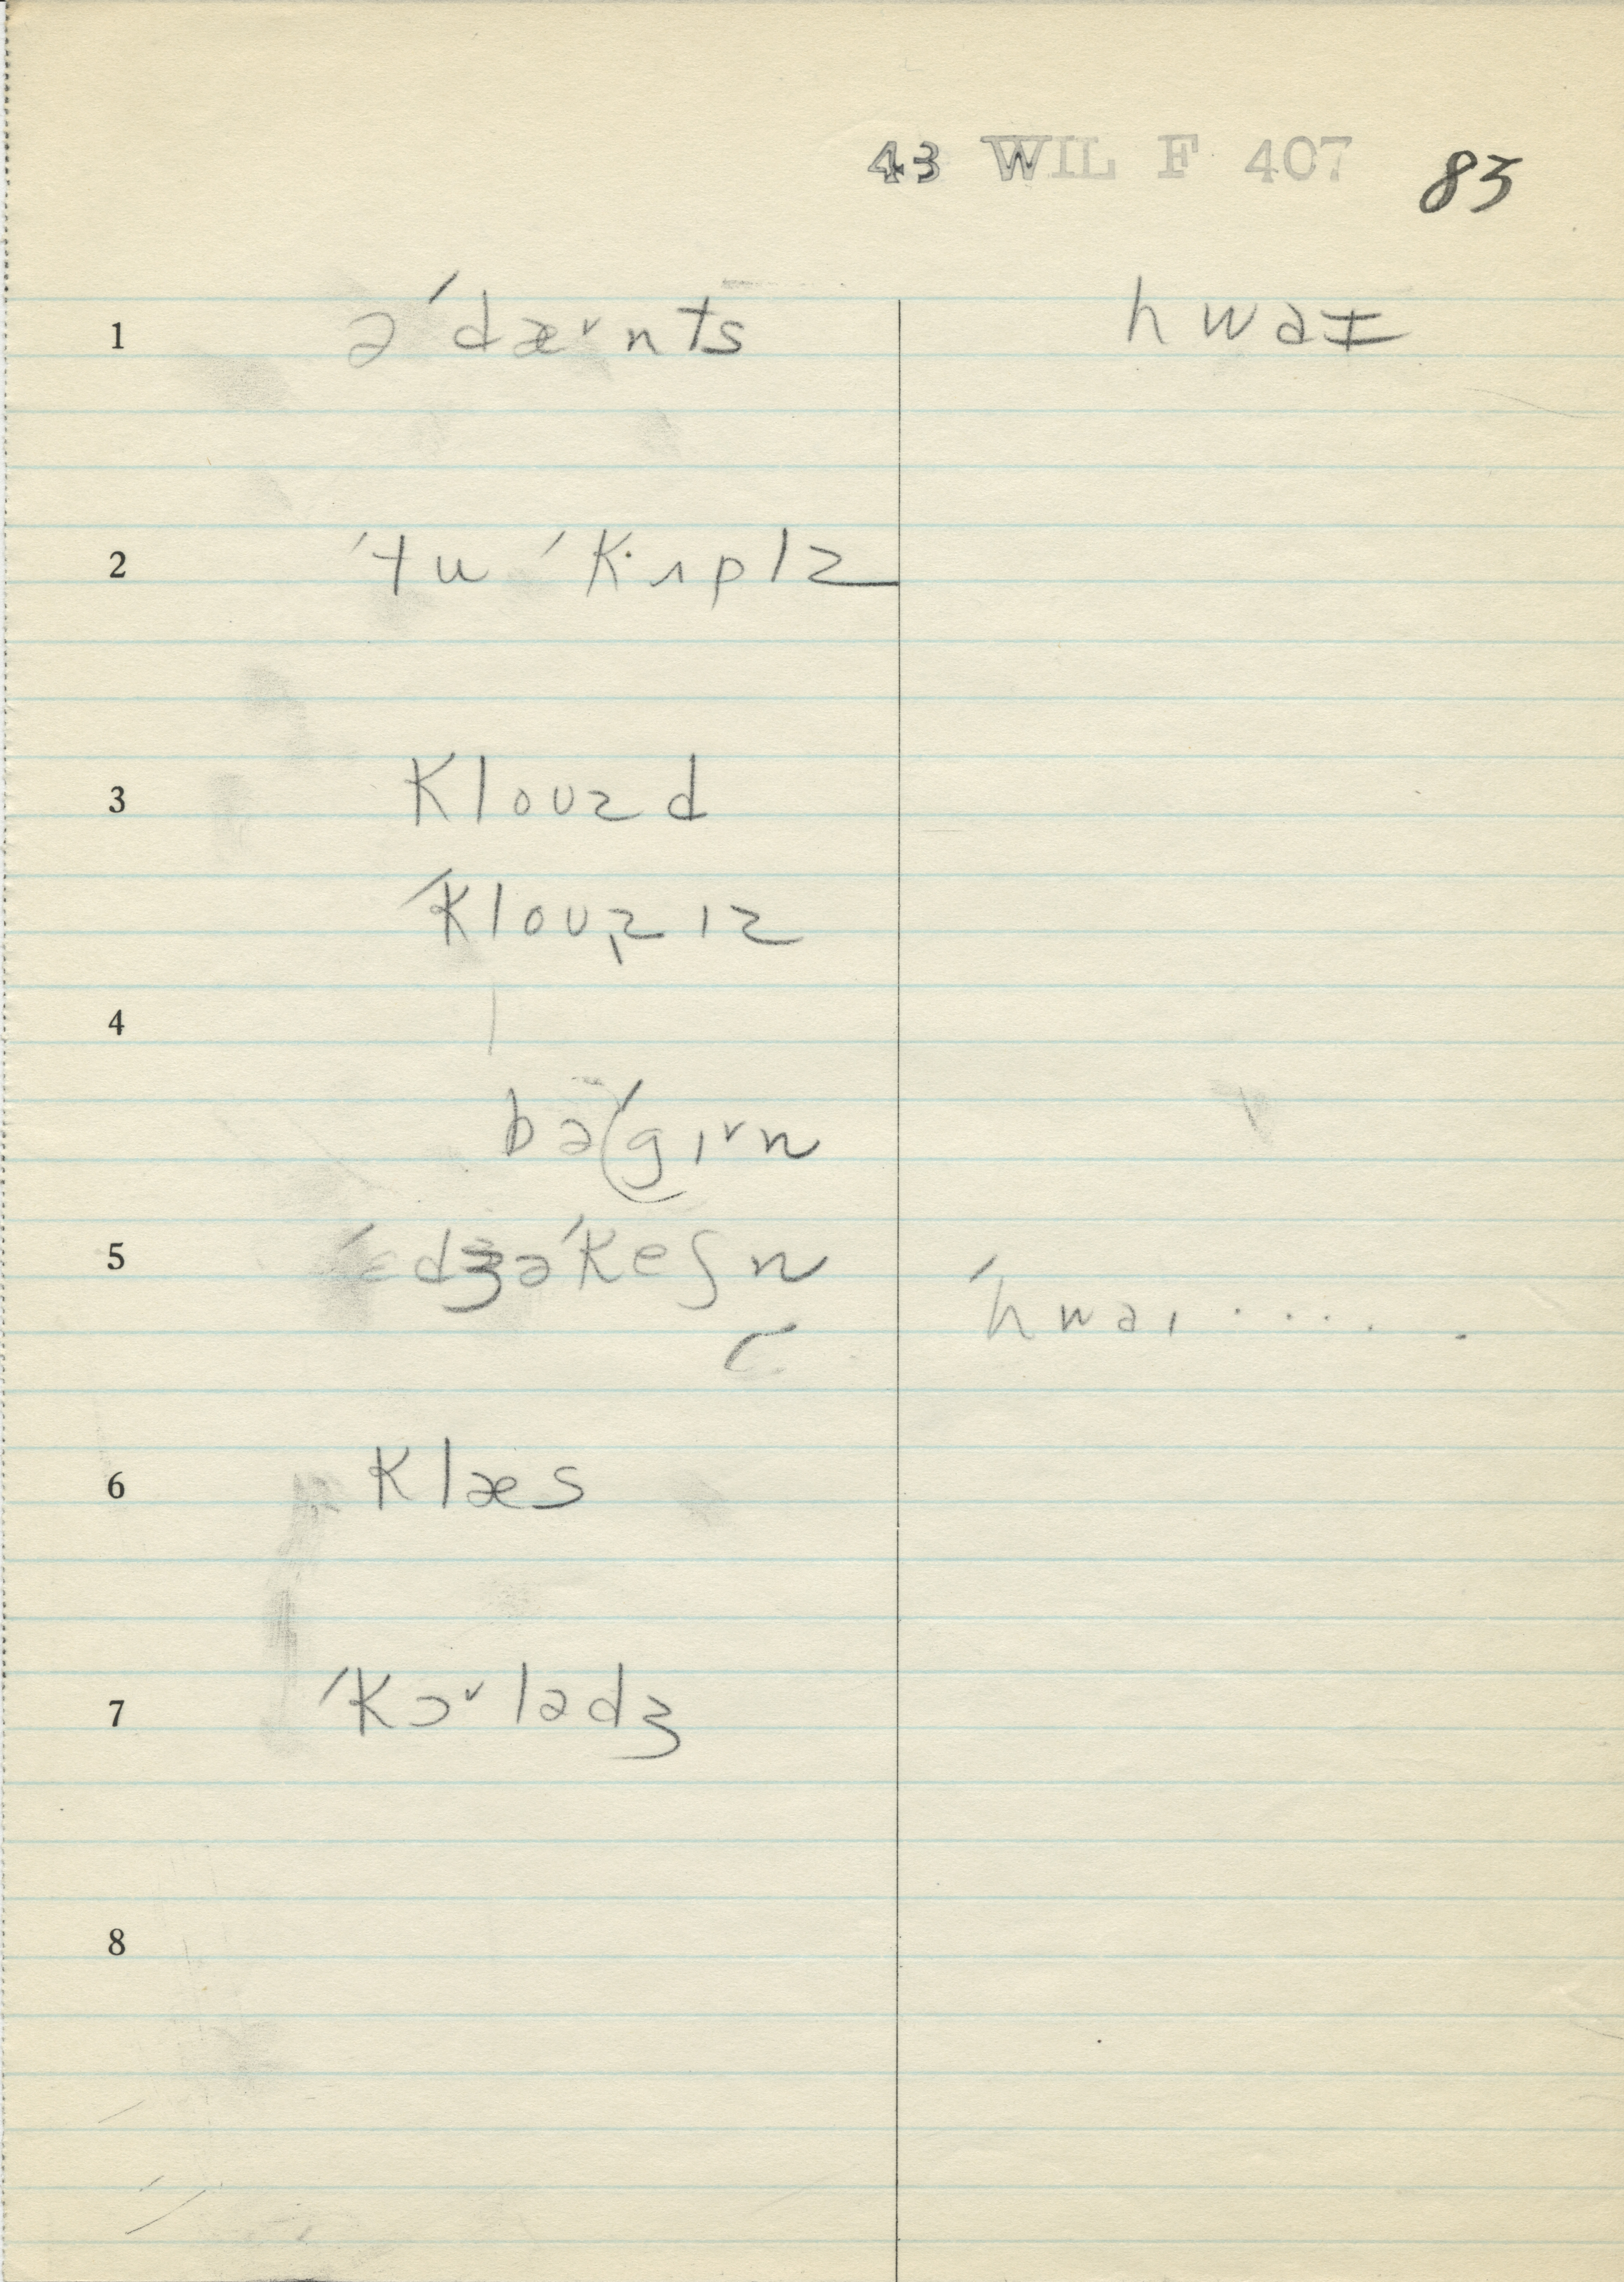 43 WIL F 407 83
1 əˈdæ˅nts hwaɪ
2 ˈtu ˈkʌplz
3 klouzd
ˈklouz̩ ız
4
bəˈgı˅n
5 ˈɛdʒəˈkeʃn ˈhwaı . . . . .
6 klæs
7 ˈkɔ˅lədʒ
8